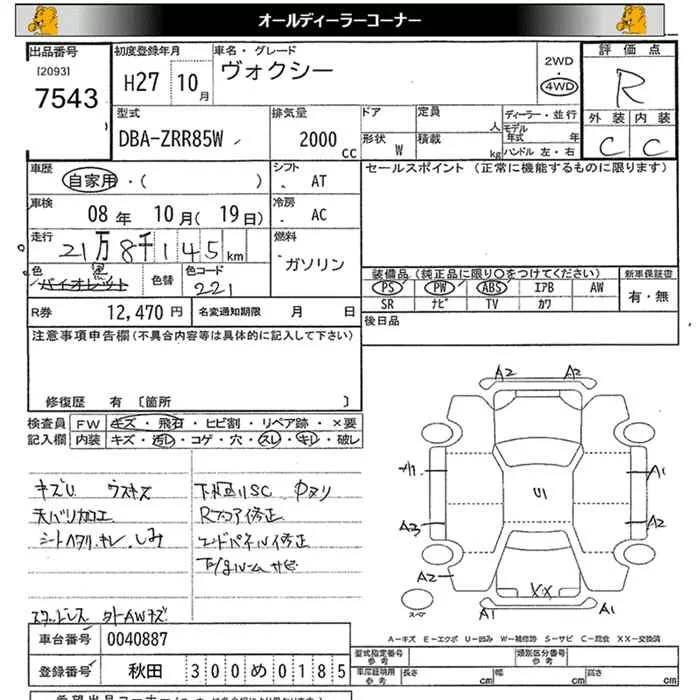 オールディーラーコーナー
出品番号 初度登録年月 車名・グレード 2WD 評価点
[2093] H27 10月 ヴォクシー 4WD R
7543
型式 排気量 ドア 定員 人 ディーラー・並行 外装 内装
DBA-ZRR85W 2000cc 形状 W 積載 kg モデル年式 年 C C
ハンドル 左・右
車歴 シフト セールスポイント (正常に機能するものに限ります)
自家用・( ) AT
車検 冷房
08年 10月(19日) AC
走行 燃料
21万8千145km ガソリン
色 黒 色替 色コード 装備品(純正品に限り○をつけてください) 新車保証書
バイオレット 221 PS PW ABS エアB AW 有・無
SR ナビ TV カワ
R券 12,470円 名変通知期限 月 日 後日品
注意事項申告欄(不具合内容等は具体的に記入して下さい)
修復歴 有 〔箇所 〕
検査員 FW キズ・飛石・ヒビ割・リペア跡・×要
記入欄 内装 キズ・汚レ・コゲ・穴・スレ・キレ・破レ
A2 A2
キズU ウスキズ
天バリ加工 Rフロア修正
シートヘタリ.キレ.しみ エンドパネル修正
A1 U1 A1
A3 A2
A2 XX
スペア A1 A1
スタッドレス
A-キズ E-エクボ U-凹み W-補修跡 S-サビ C-腐食 XX-交換済
車台番号 0040887
型式指定番号 参考 類別区分番号 参考
登録番号 秋田 300め0185
車庫証明用 参考 長さ cm 幅 cm 高さ cm